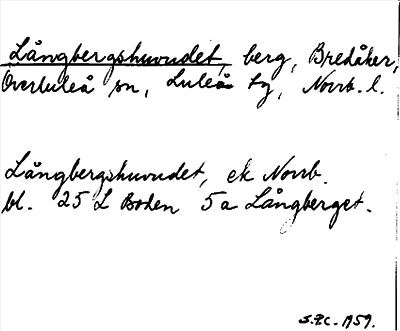 Långbergshuvudet, berg, Bredåker,
Överluleå sn, Luleå tg, Norrb. l.
Långbergshuvudet, ek Norrb.
bl. 25 L Boden 5a Långberget.
S.P.C. 1959.